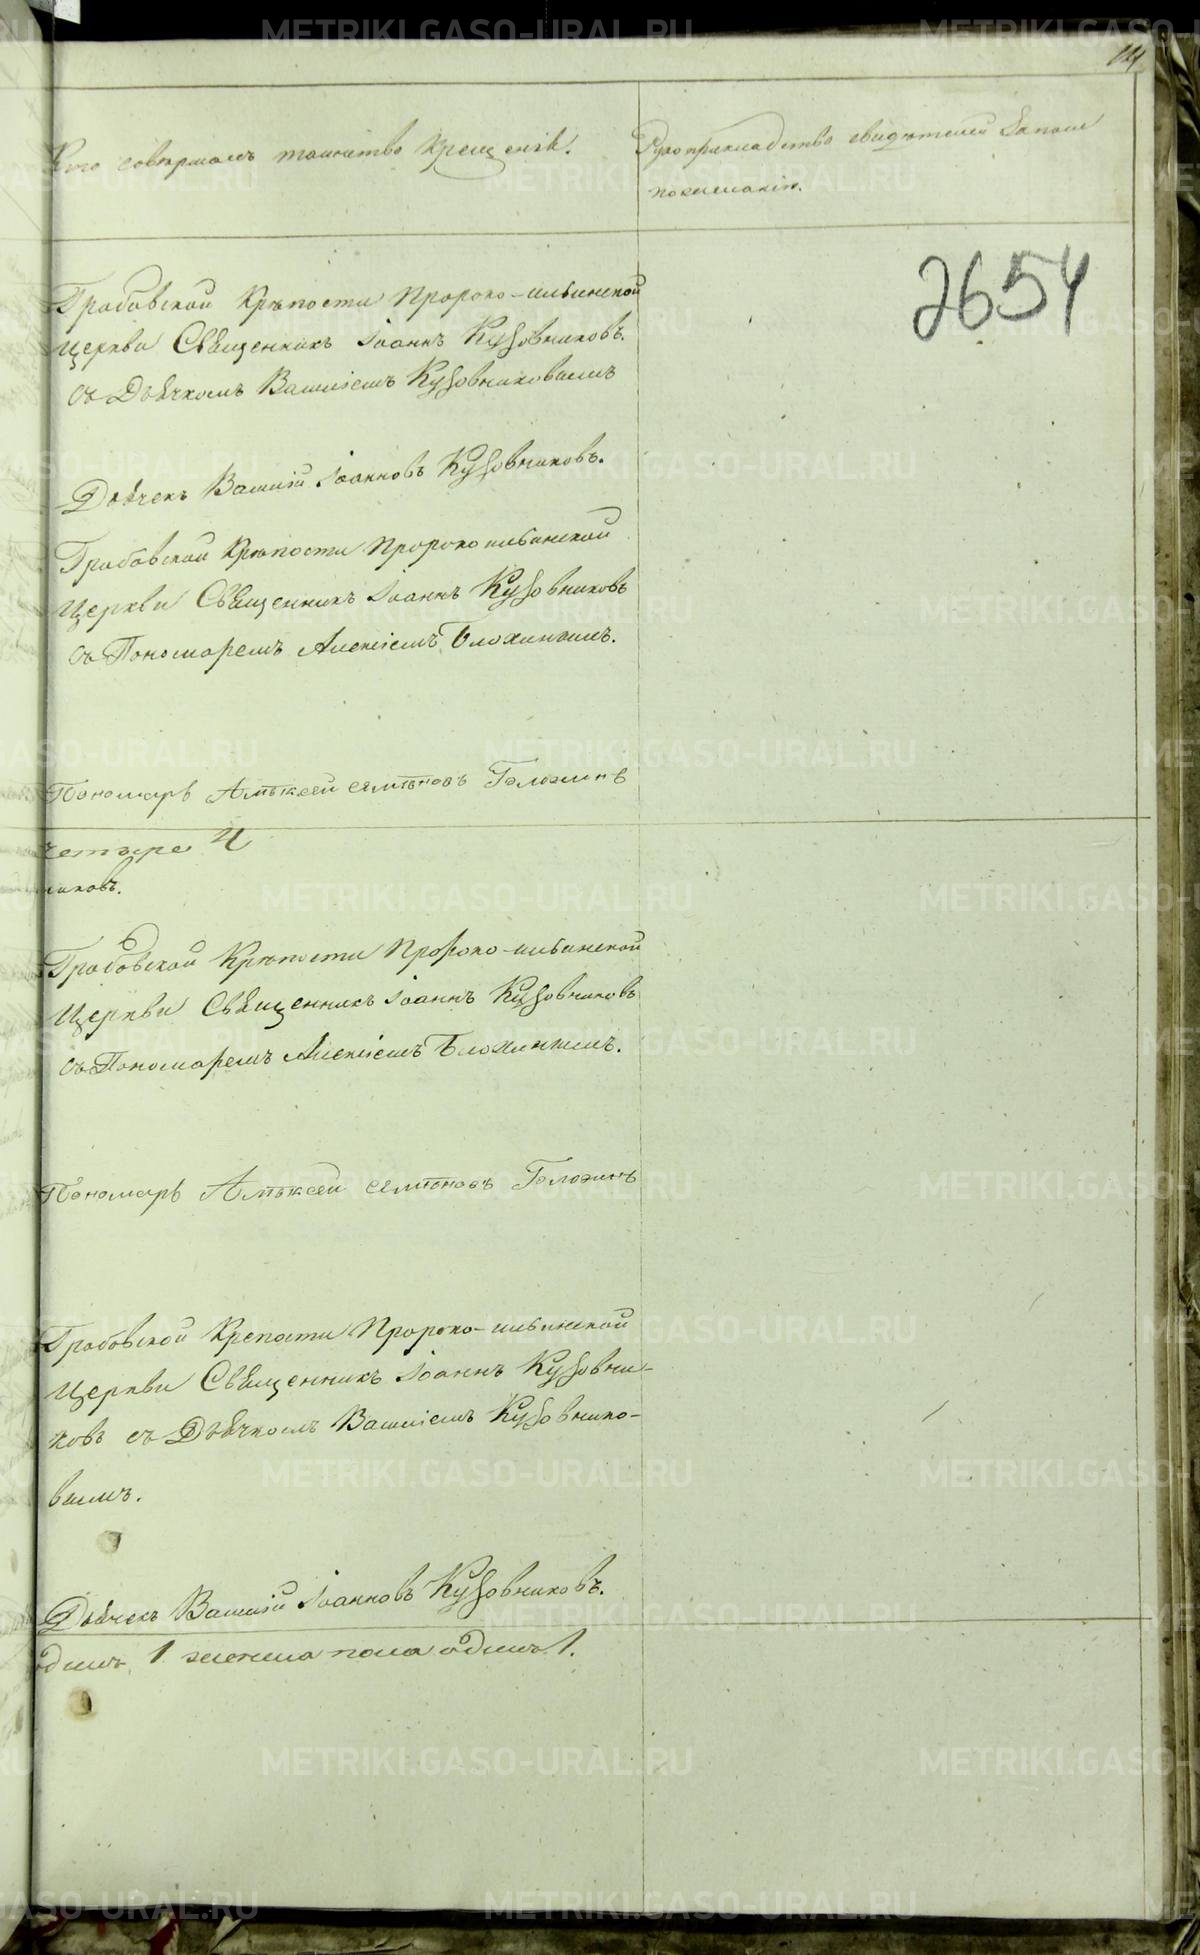 Кто совершалъ таинство крещенія.
Рукоприкладство свидѣтелей записи
по желанію.
2654
Грабовской Крѣпости Пророко-ильинской
Церкви Священникъ Іоаннъ Кузовниковъ.
съ Дьячкомъ Василіемъ Кузовниковымъ
Дьячекъ Василій Іоанновъ Кузовниковъ.
Грабовской Крѣпости Пророко ильинской
Церкви Священникъ Іоаннъ Кузовниковъ
съ Пономаремъ Алексіемъ Блохинымъ.
Пономарь Алѣксей семѣновъ Блохинъ
четыре 4
никовъ.
Грабовской Крѣпости Пророко-ильинской
Церкви Священникъ Іоаннъ Кузовниковъ
съ Пономаремъ Алексіемъ Блохинымъ.
Пономарь Алѣксей семѣновъ Блохинъ
Грабовской Крепости Пророко-ильинской
Церкви Священникъ Іоаннъ Кузовни-
ковъ съ Дьячкомъ Василіемъ Кузовнико-
вымъ.
Дьячекъ Василій Іоанновъ Кузовниковъ.
одинъ 1 женска пола одинъ 1.
METRIKI.GASO-URAL.RU